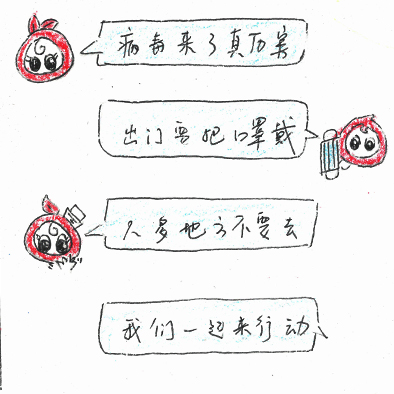 病毒来了真厉害
出门要把口罩戴
人多地方不要去
我们一起来行动